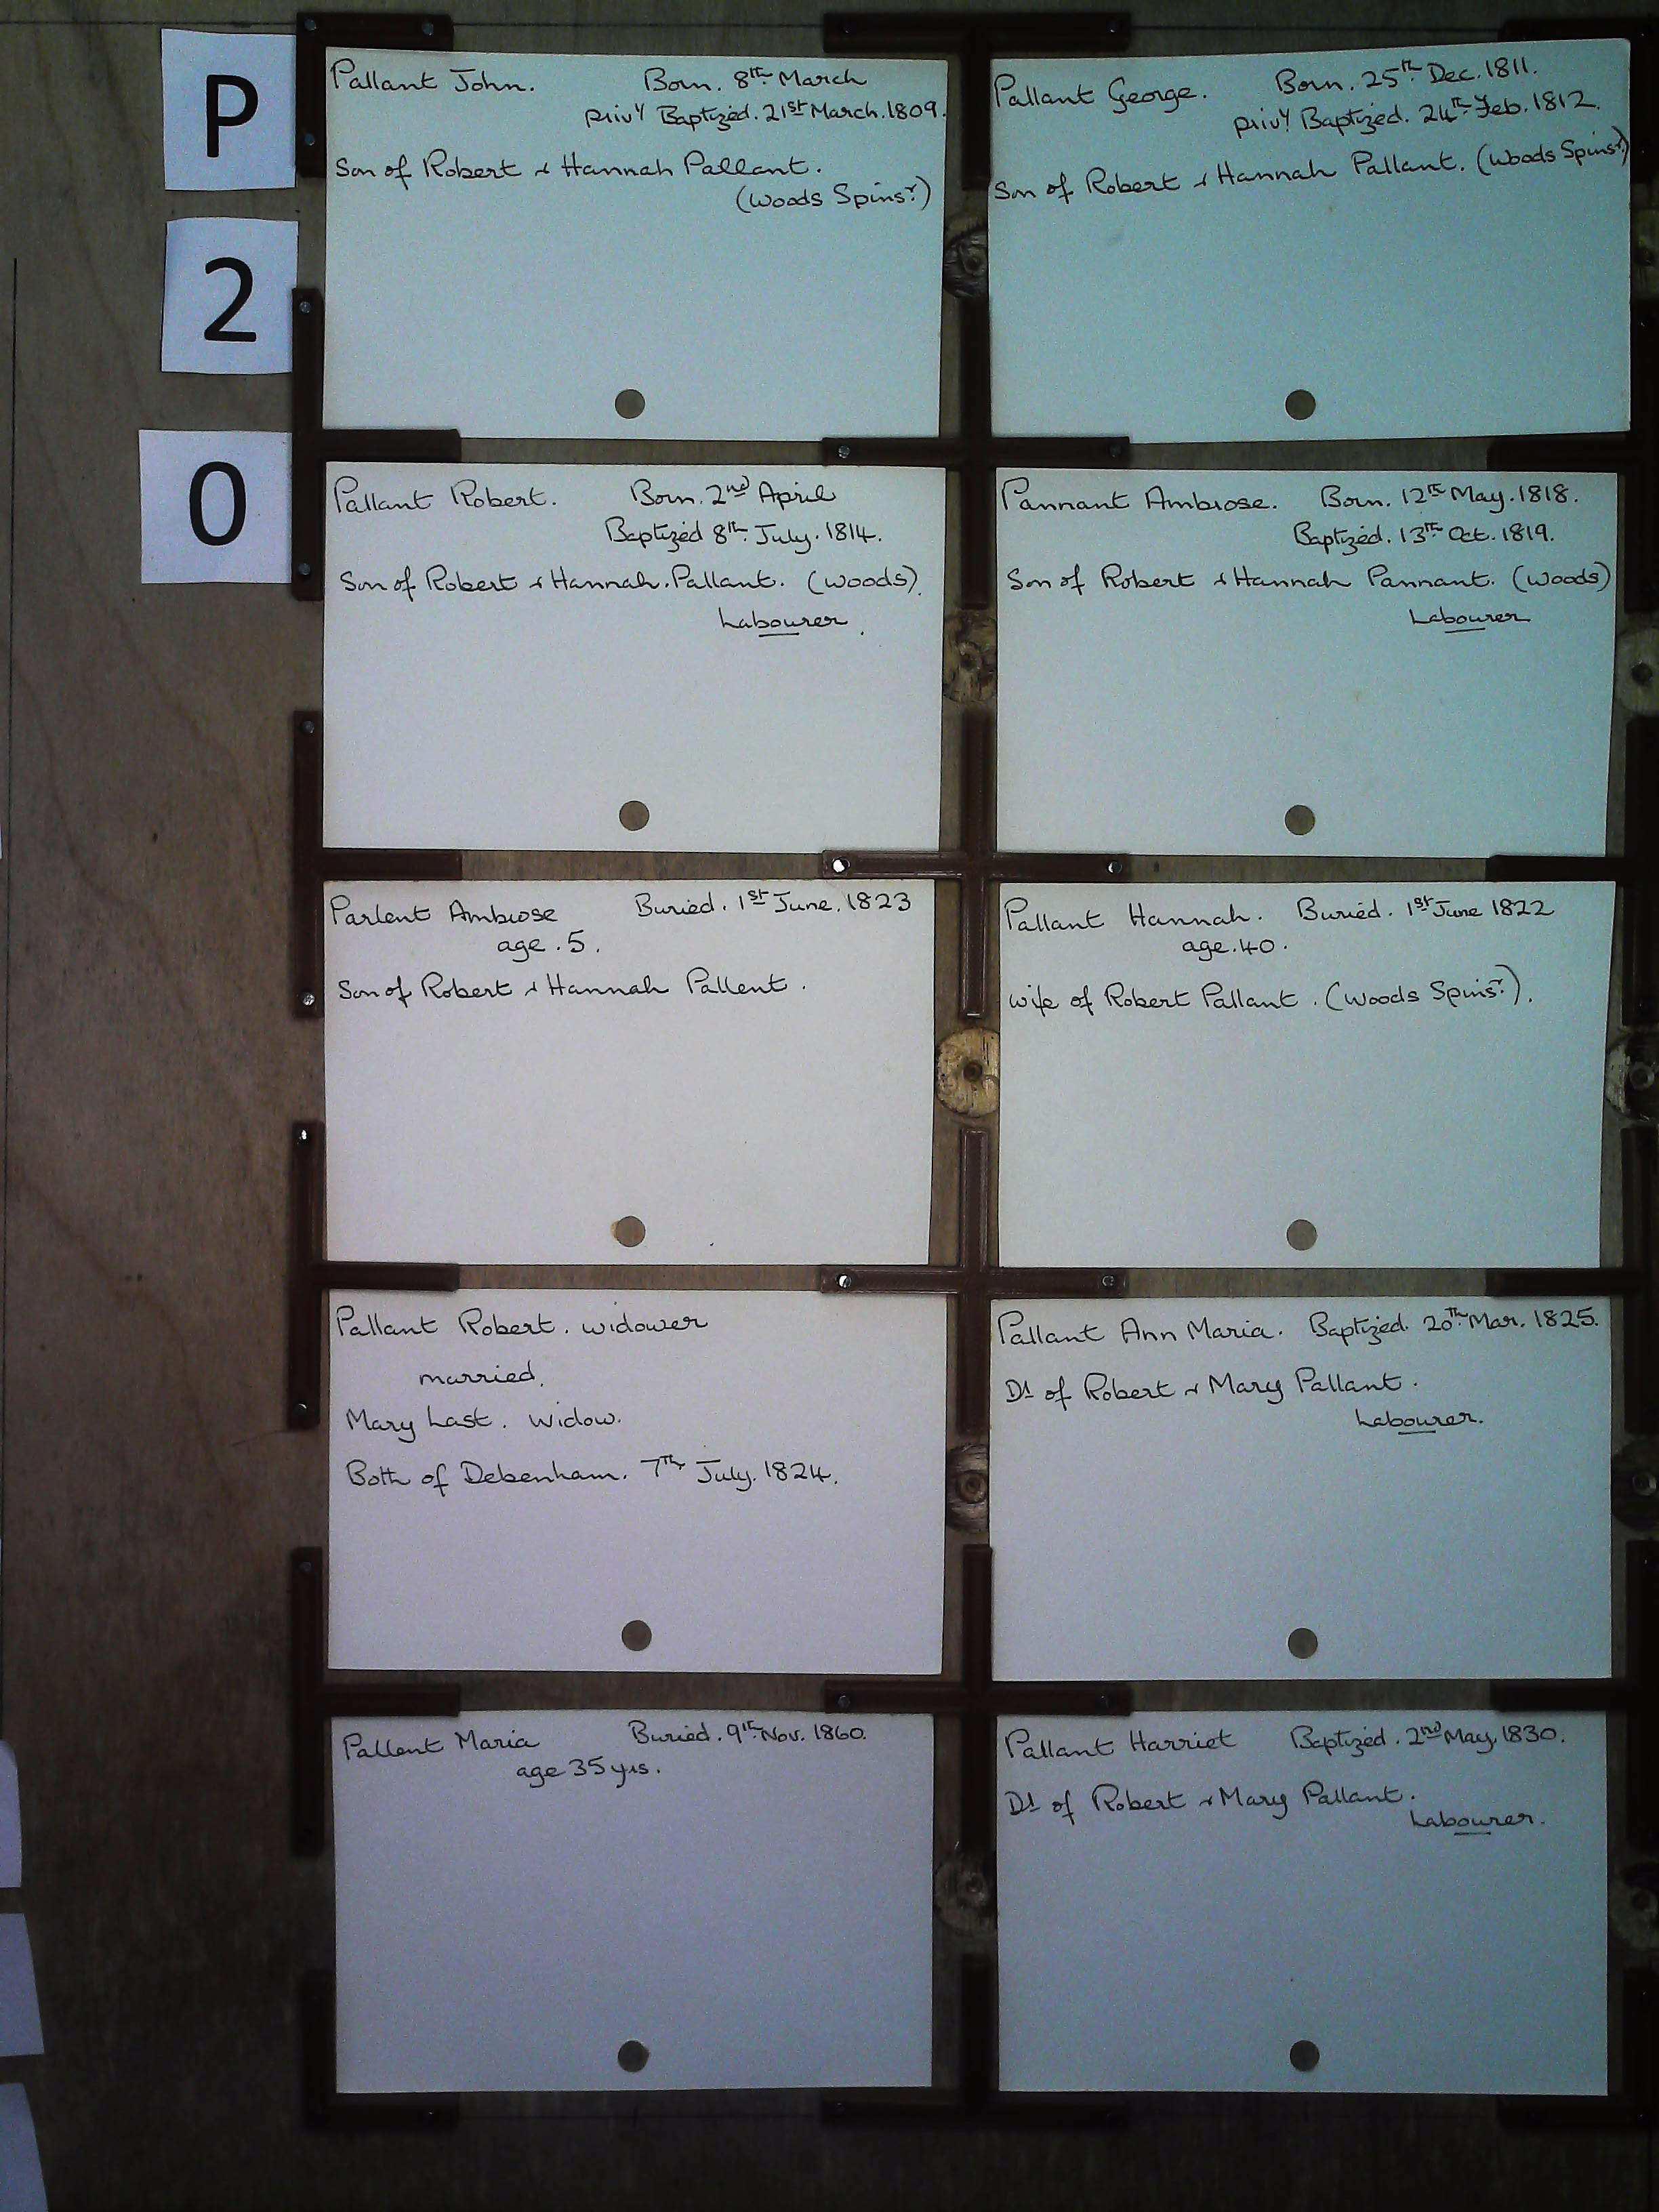 P
2
0
Pallant John. Born. 8th March
privy Baptized. 21st March. 1809.
Son of Robert & Hannah Pallant.
(Woods Spinsr.)
Pallant George. Born. 25th Dec. 1811.
privy Baptized. 24th Feb. 1812.
Son of Robert & Hannah Pallant. (Woods Spinsr.)
Pallant Robert. Born. 2nd April
Baptized 8th July. 1814.
Son of Robert & Hannah. Pallant. (Woods).
Labourer.
Pannant Ambrose. Born. 12th May. 1818.
Baptized. 13th Oct. 1819.
Son of Robert & Hannah Pannant. (Woods)
Labourer
Parlent Ambrose Buried. 1st June. 1823
age. 5.
Son of Robert & Hannah Pallent.
Pallant Hannah. Buried. 1st June 1822
age. 40.
Wife of Robert Pallant. (Woods Spinsr.).
Pallant Robert. widower
married.
Mary Last. Widow.
Both of Debenham. 7th July. 1824.
Pallant Ann Maria. Baptized. 20th Mar. 1825.
Dt of Robert & Mary Pallant.
Labourer.
Pallent Maria Buried. 9th Nov. 1860.
age 35 yrs.
Pallant Harriet Baptized. 2nd May. 1830.
Dt of Robert & Mary Pallant.
Labourer.